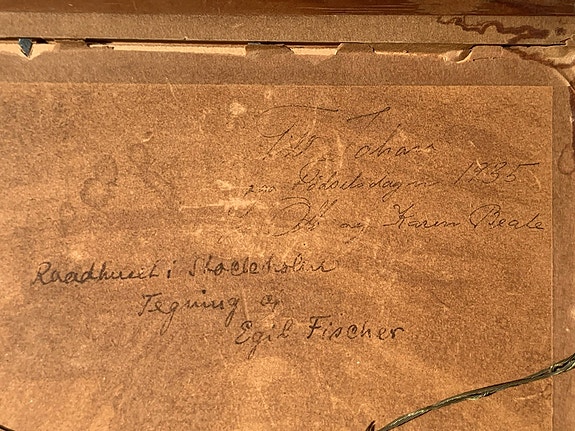 Til Johan
paa Födselsdagen 1935
og Karen Beate
Raadhuset i Stockholm
Tegning af
Egil Fischer